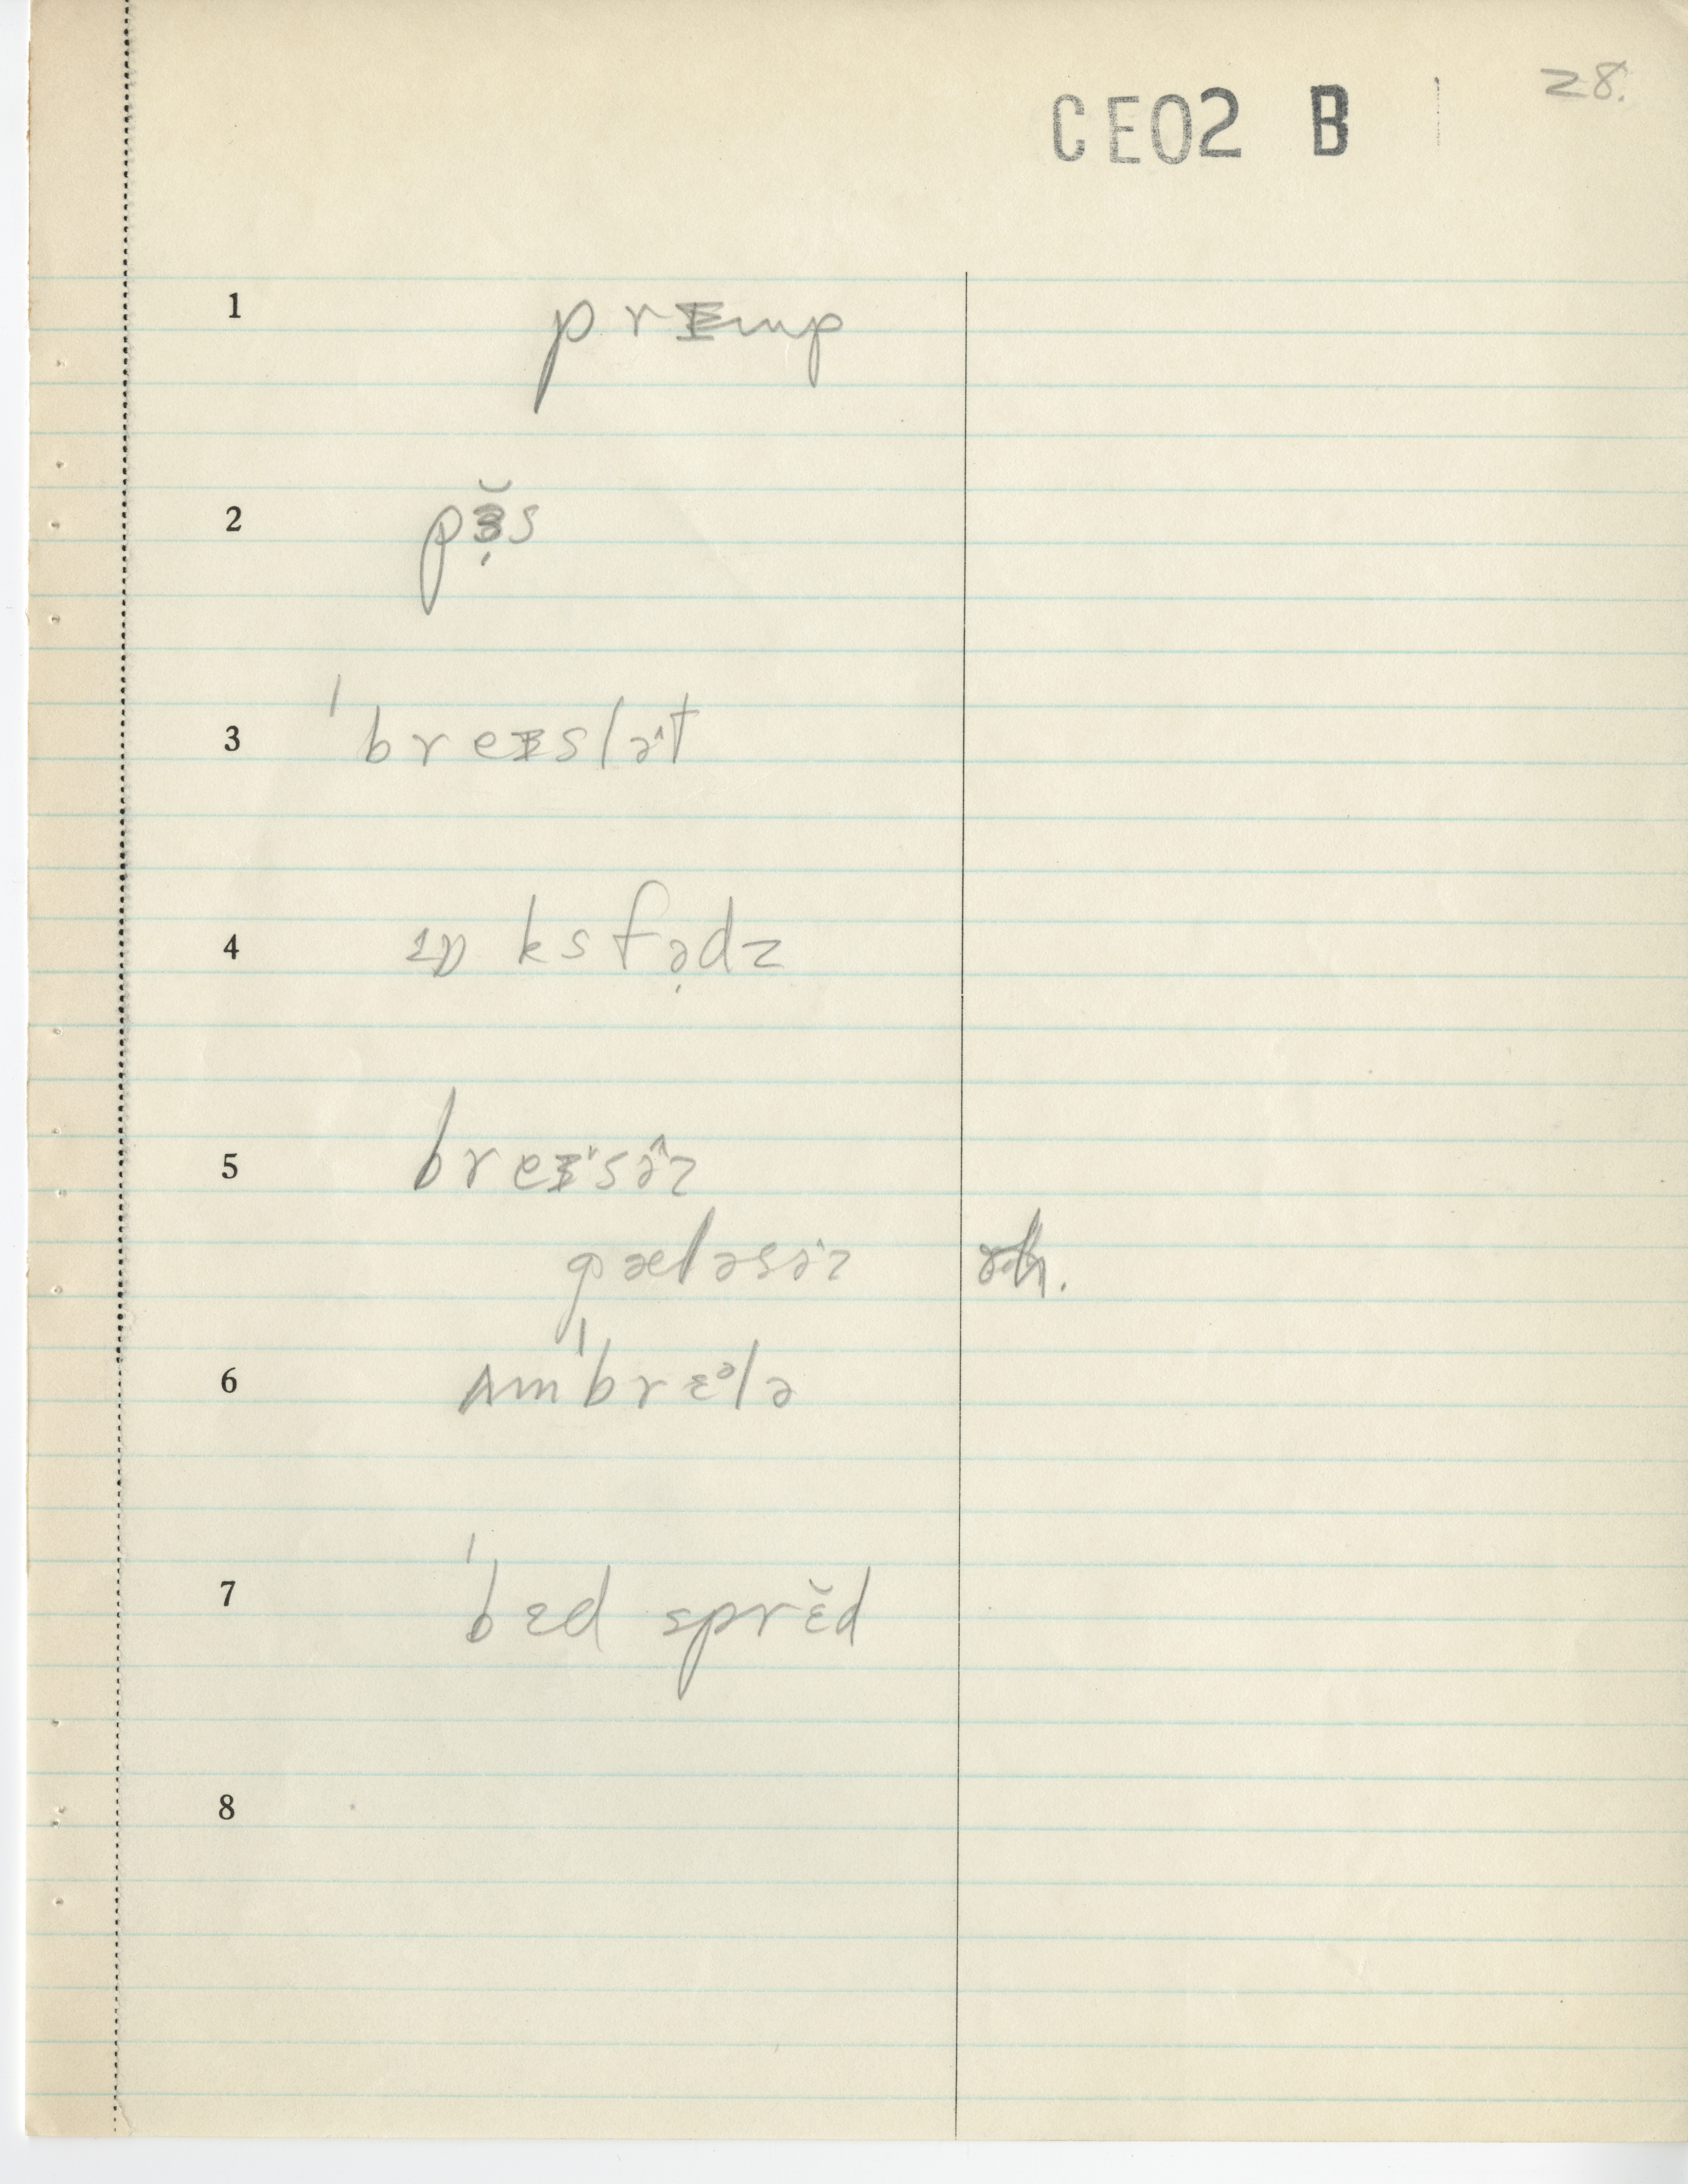 28.
CE02 B
1 prɪmp
2 pɜ̣̆s
3 ˈbreɪslə^t
4 ɒksfə̣dz
5 breɪˈsə^z
gæləsə^z
6 ʌmˈbrɛᵊlə
7 ˈbɛd sprɛ̆d
8